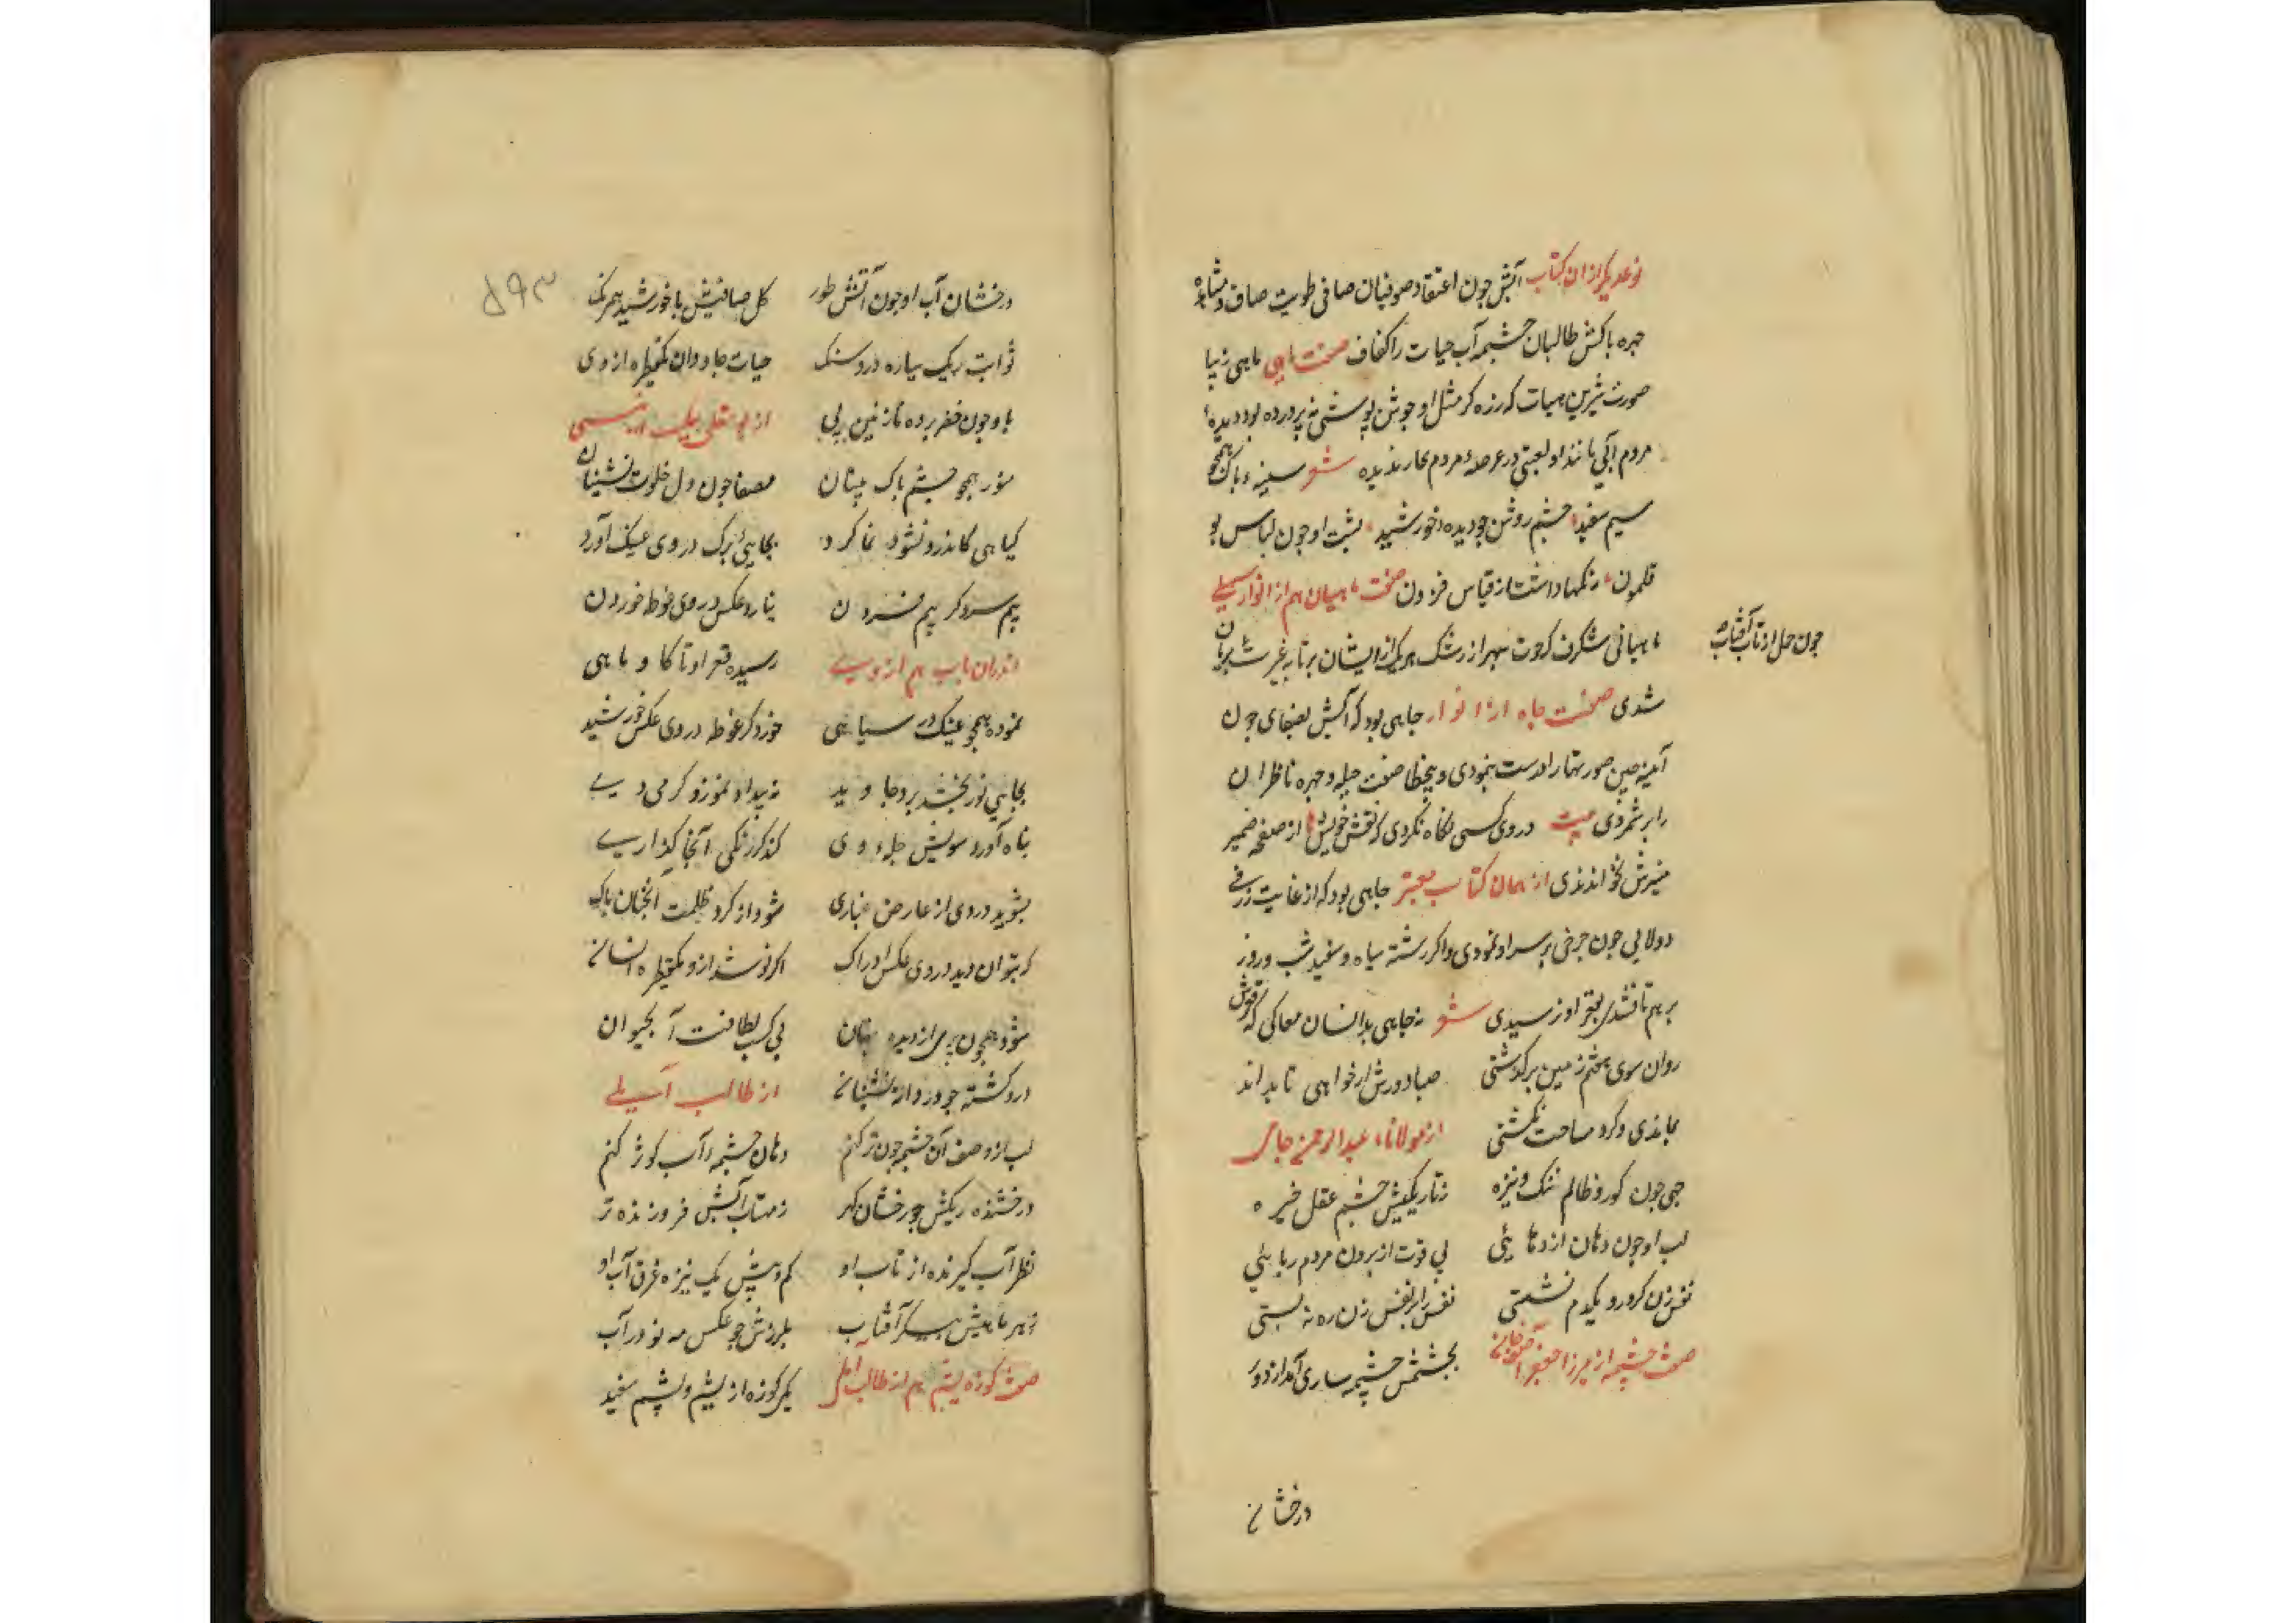 نوعدیگر ازان کتاب آبش چون اعتقاد صوفیان صافی طویت صاف و مشاهده
چهره پاکش طالبان چشمه آب حیات را کفاف صفت ماهی ماهی زیبا
صورت شیرین هیات که زره گر مثل او جوشن پوشی نه پرورده بود و دیده
مردم آبی مانند او لعبتی در عرصه مردم بحار ندیده شعر سینه پاک همچو
سیم سفید چشم روشن چو دیده خورشید پشت او چون لباس بو
قلمون رنگها داشت از قیاس فزون صفت ماهیان هم از انوار سهیلی
ماهیانی شگرف که حوت سپهر از رشک هر یک از ایشان بر تابه غیرت بریان
چون حمل از تاب آفتاب
شدی صفت چاه از انوار چاهی بود که آبش بصفای چون
آینه چین صورتها را درست بنمودی و بیخطا صفت حلیه و چهره ناظران
را بر شمردی بیت در وی کسی نگاه نکردی که نقش خویش از صفحه ضمیر
منیرش نخواندندی از همان کتاب معتبر چاهی بود که از غایت ژرفی
دولابی چون چرخ بر سر او نمودی و اگر رشته سیاه و سفید شب و روز
بر هم تافتندی بقعر او نرسیدی شعر نه چاهی بدانسان مغاکی که قعرش
روان سوی هفتم زمین برگذشتی صبا در ورش ار خواهی تا بداند
بماندی و گرد مساحت نگشتی از مولانا عبدالرحمن جامی
چهی چون گور ظالم تنگ و تیره ز تاریکیش چشم عقل خیره
لب او چون دهان اژدهایی پی قوت از برون مردم ربایی
نفس زن گر درو یکدم نشستی نفس را بر نفس زن ره نه بستی
صفت چشمه از میرزا جعفر آصفخانی بچشمش چشمه ساری آمد از دور
درخشان
درخشان آب او چون آتش طور گل صافیش با خورشید همرنگ
ثوابت ریگ سیاره درو سنگ حیات جاودان یکقطره از وی
باو چون خضر برده نازنین پی
منور همچو چشم پاک بینان مصفا چون دل خلوت نشینان
گیاهی کاندرو نشو و نما کرد بجای برگ در وی عینک آورد
ز بیم سرد گر بیم فسردن نیارد عکس در وی غوطه خوردن
اندران باب هم از وی رسیده قعر او تا گاو و ماهی
نموده همچو عینک در سیاهی خورد گر غوطه در وی عکس خورشید
بجایی نور بخشد بر وجاوید
پناه آورد سویش جلوه وی کند گر زنگی آنجا گذاری
بشوید در وی از عارض غباری شود از گرد ظلمت آنچنان پاک
که بتوان دید در وی عکس ادراک اگر نوشد ازو یکقطره انسانی
شود همچون پری از دیده پنهان پی کسب لطافت آب حیوان
از طالب آملی
لب از وصف آن چشمه چون تر کنم دهان چشمه آب کوثر کنم
درخشنده ریگش چو رخشان گهر ز مهتاب آبش فروزنده تر
نظر آب گیرنده از تاب او کم و بیش یک نیزه غرق آب او
ز هر ماهیش پیکر آفتاب بلرزش چو عکس مه نو در آب
صفت کوزه یشم هم از طالب آملی یکی کوزه از یشم و یشم سفید
۵۹۳